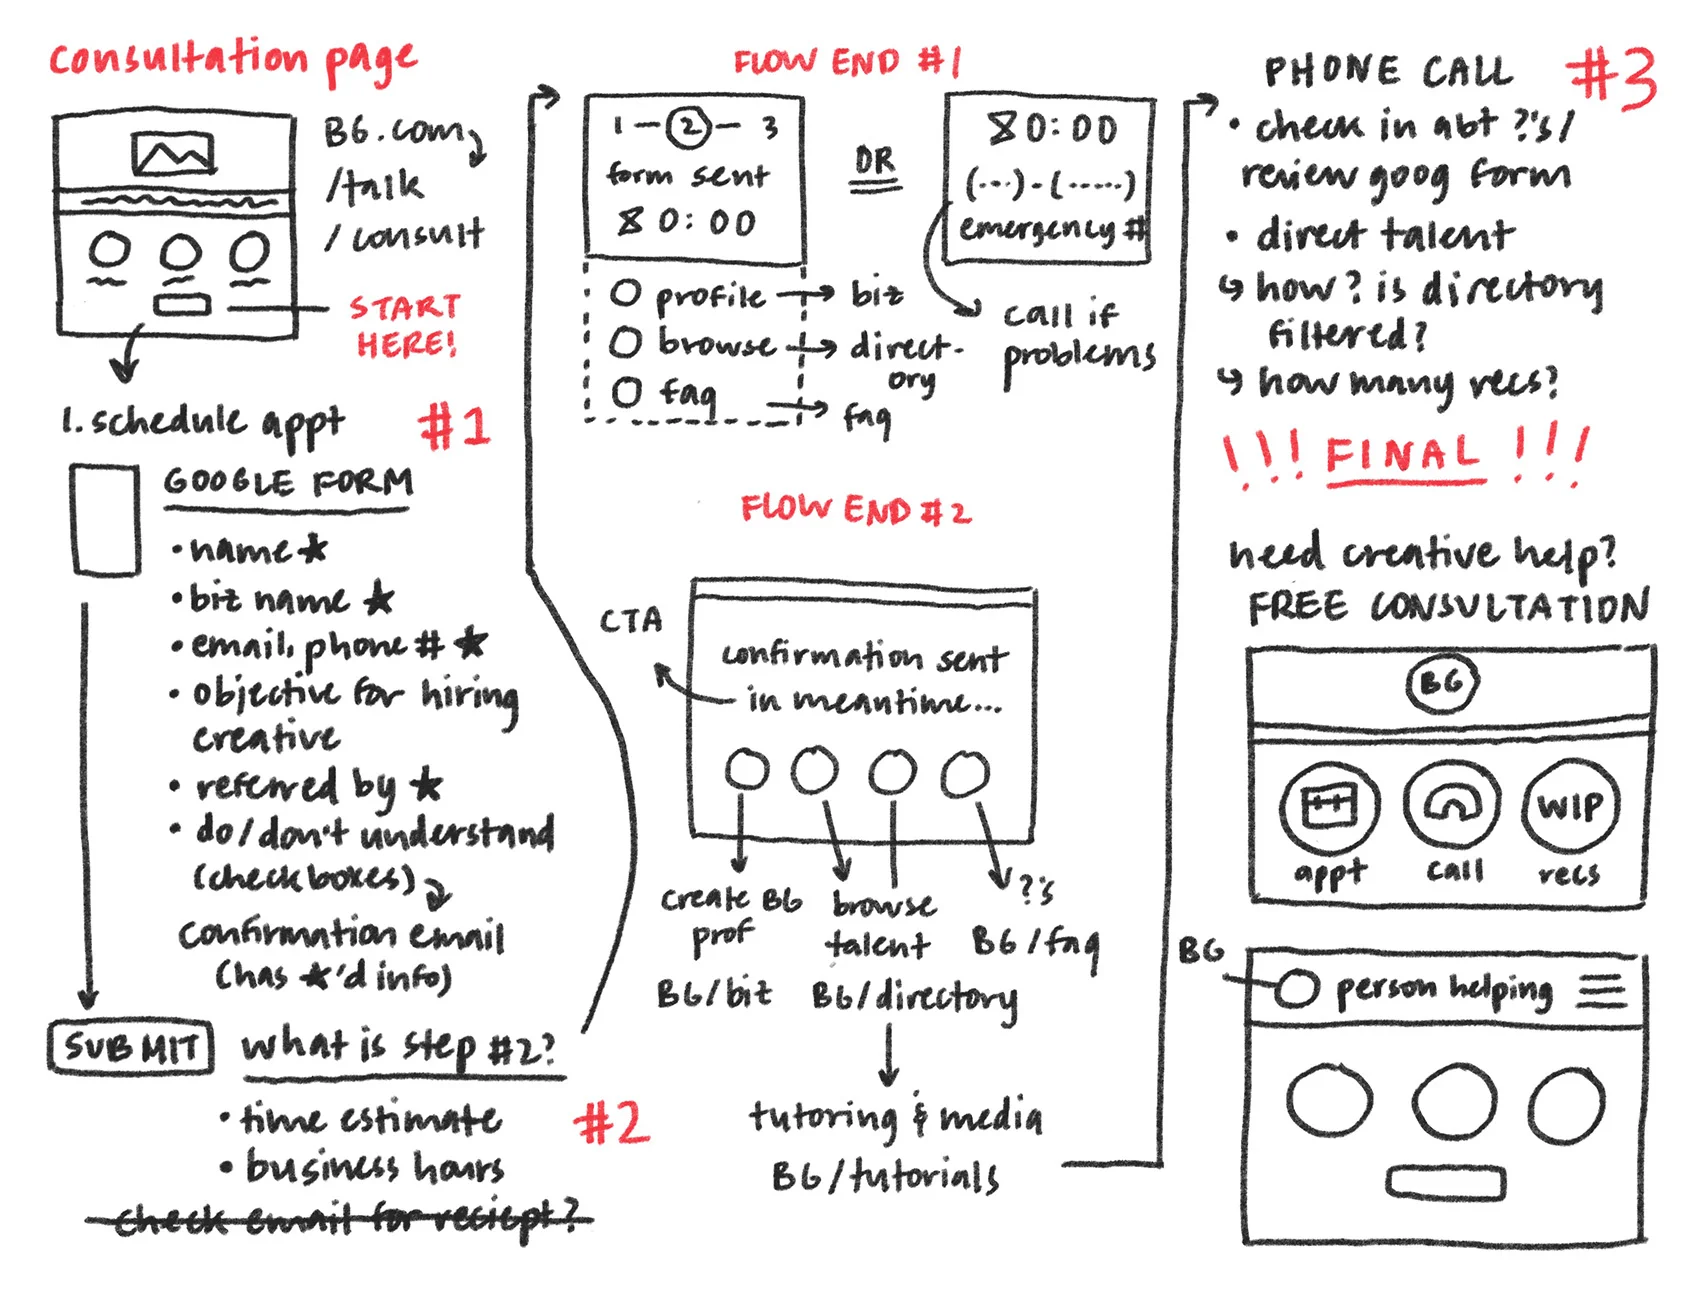 consultation page
BG.com
/talk
/consult
START
HERE!
1. schedule appt
#1
GOOGLE FORM
• name ★
• biz name ★
• email, phone # ★
• objective for hiring
creative
• referred by ★
• do/don't understand
(checkboxes)
confirmation email
(has ★'d info)
SUBMIT
what is step #2?
#2
• time estimate
• business hours
check email for reciept?
FLOW END #1
1 — 2 — 3
form sent
0:00
profile → biz
browse → direct-
ory
faq → faq
OR
0:00
(...)-(.....)
emergency #
call if
problems
FLOW END #2
CTA
confirmation sent
in meantime...
create BG
prof
BG/bit
browse
talent
BG/directory
?'s
BG/faq
tutoring & media
BG/tutorials
PHONE CALL
#3
• check in abt ?'s/
review goog form
• direct talent
↳ how? is directory
filtered?
↳ how many recs?
!!! FINAL !!!
need creative help?
FREE CONSULTATION
BG
WIP
appt call recs
BG
person helping